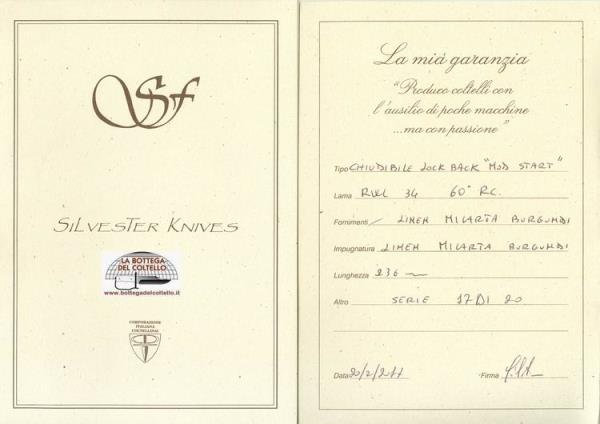 Sf
SILVESTER KNIVES
LA BOTTEGA
DEL COLTELLO
www.bottegadelcoltello.it
CORPORAZIONE
ITALIANA
COLTELLINAI
La mia garanzia
"Produco coltelli con
l'ausilio di poche macchine
...ma con passione"
Tipo CHIUDIBILE LOCK BACK "MOD START"
Lama RWL 34 60° RC.
Fornimenti LINEN MICARTA BURGUNDI
Impugnatura LINEN MICARTA BURGUNDI
Lunghezza 236
Altro SERIE 17 DI 20
Data 20/2/2011
Firma